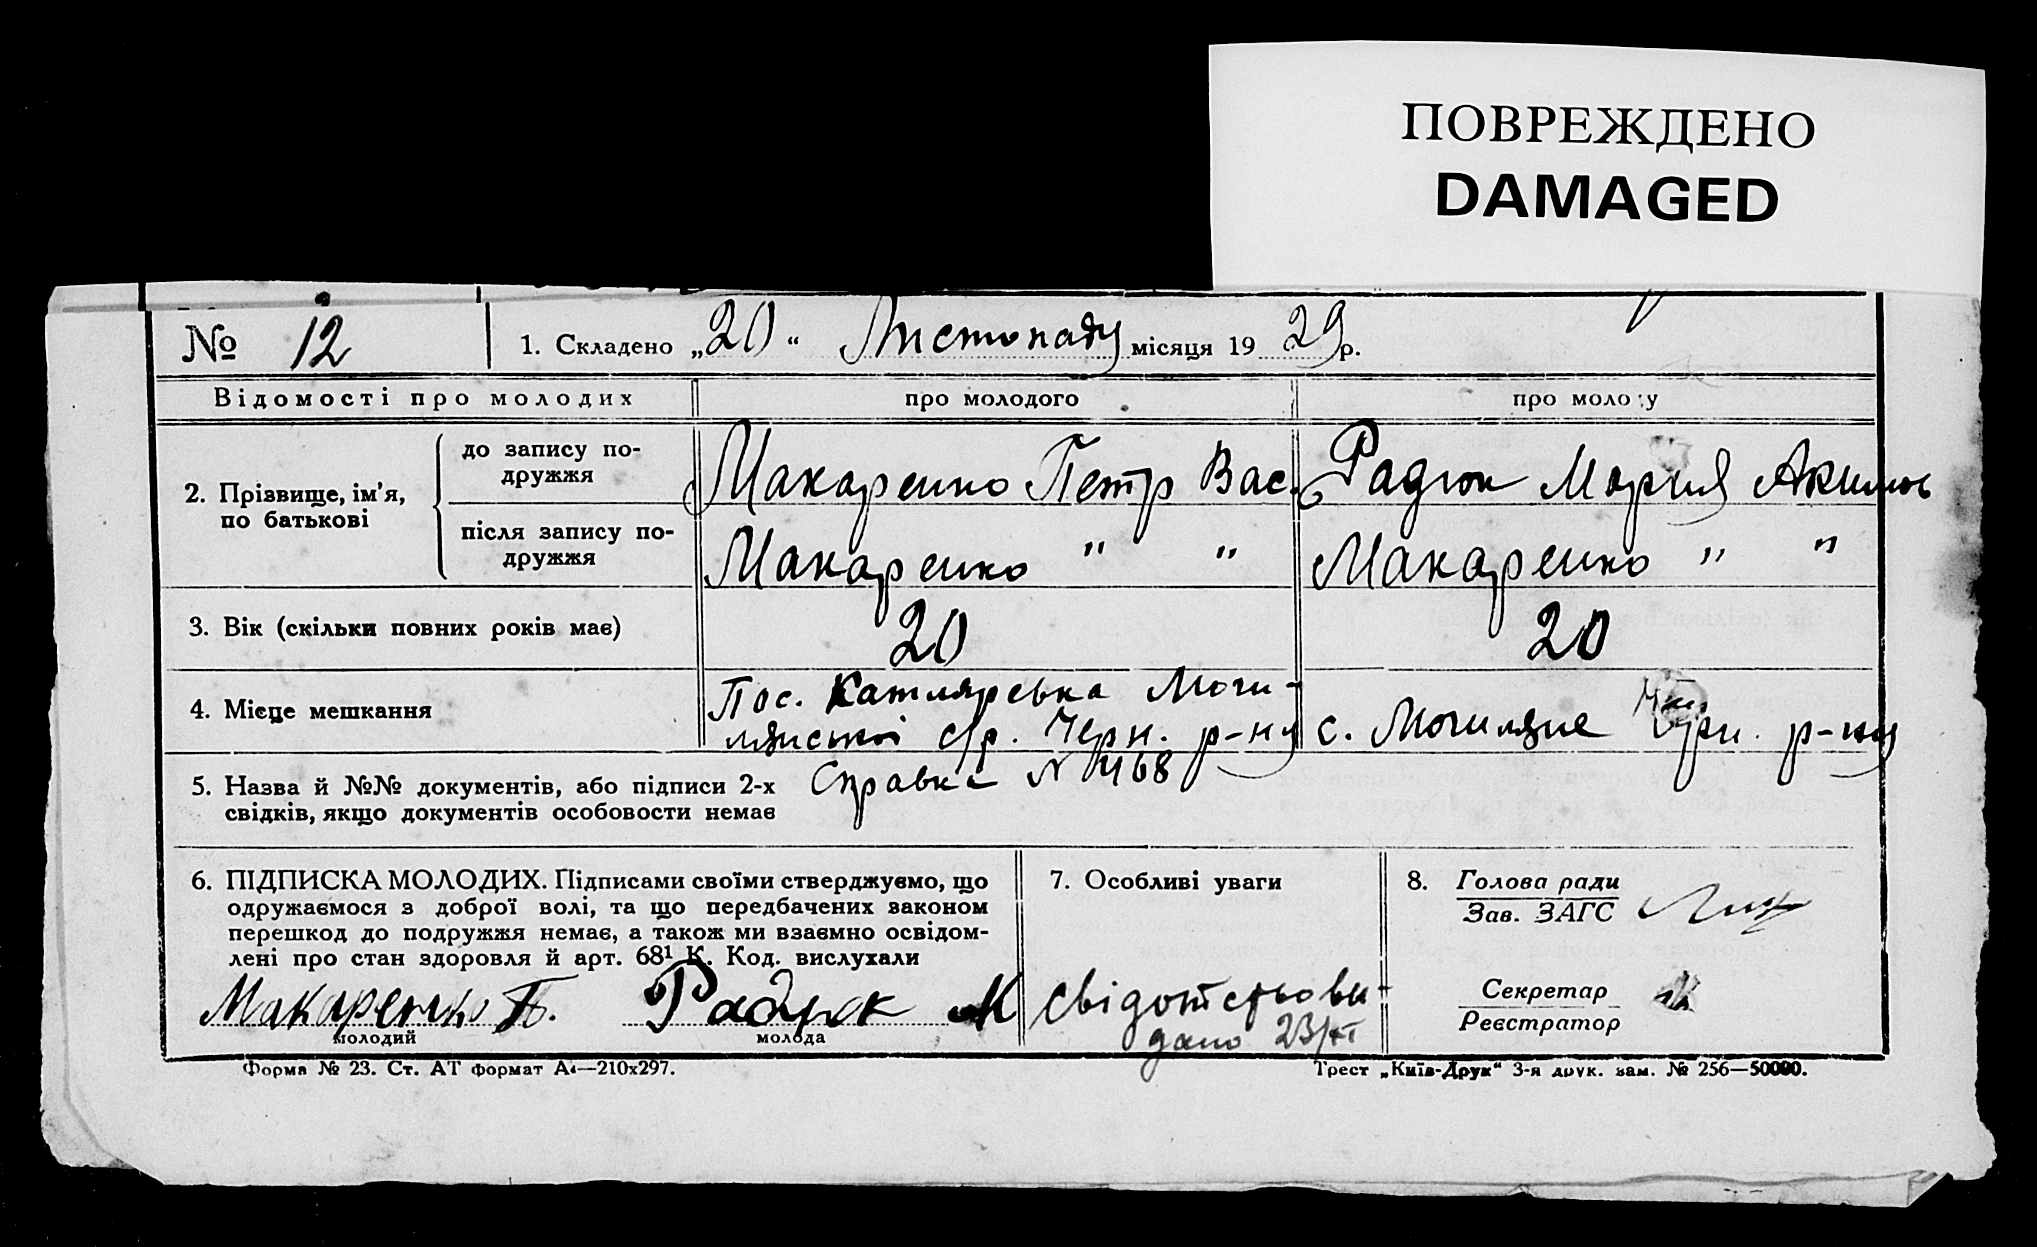 ПОВРЕЖДЕНО
DAMAGED
№ 12 1. Складено „20“ Листопаду місяця 1929 р.
Відомості про молодих про молодого про моло у
2. Прізвище, ім'я, по батькові
до запису подружжя Макаренко Петр Вас. Радюк Мария Акимов
після запису подружжя Макаренко " " Макаренко " "
3. Вік (скільки повних років має) 20 20
4. Місце мешкання
Пос. Катлярська Моги-
лянської с/р. Черн. р-ну с. Могиляне Черн. р-ну
5. Назва й №№ документів, або підписи 2-х Справка N 468
свідків, якщо документів особовости немає
6. ПІДПИСКА МОЛОДИХ. Підписами своїми стверджуємо, що
одружаємося з доброї волі, та що передбачених законом
перешкод до подружжя немає, а також ми взаємно освідом-
лені про стан здоровля й арт. 68¹ К. Код. вислухали
Макаренко П. Радюк М
молодий молода
7. Особливі уваги
свідотстьови-
дано 23/XI
8. Голова ради
Зав. ЗАГС
Секретар
Реєстратор
Форма № 23. Ст. АТ формат А4—210х297. Трест „Київ-Друк“ 3-я друк. зам. № 256—50000.